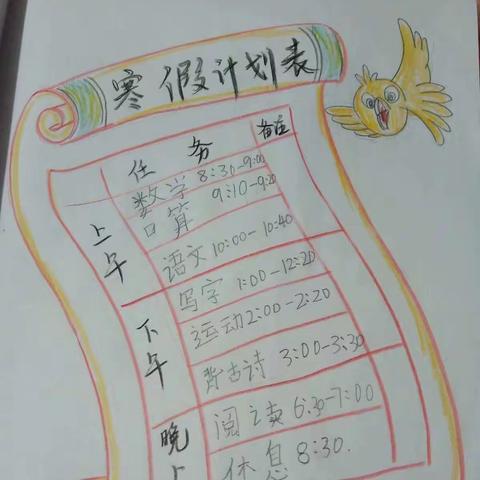 寒假计划表
任务 备注
上午
数学 8:30-9:00
口算 9:10-9:20
语文 10:00-10:40
下午
写字 1:00-12:20
运动 2:00-2:20
背古诗 3:00-3:30
晚上
阅读 6:30-7:00
休息 8:30.